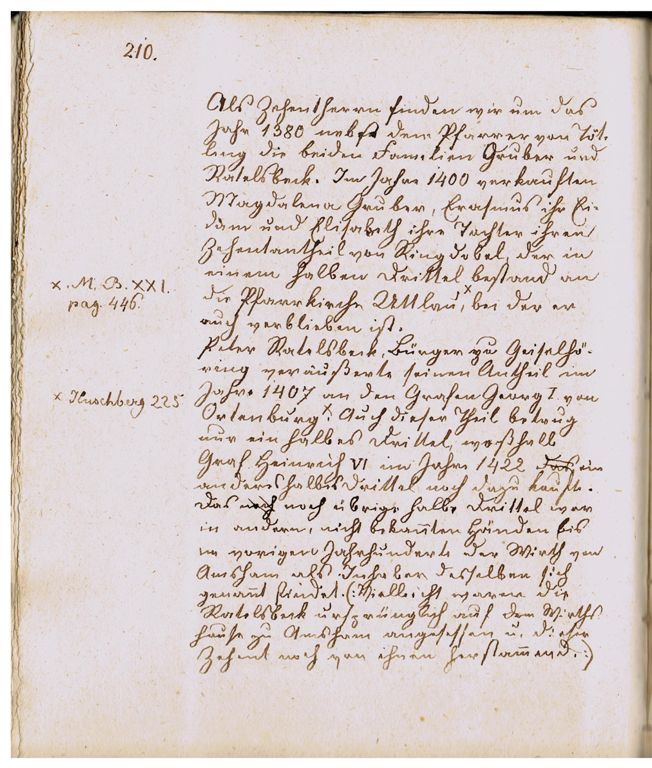 210.
Als Zehentherrn finden wir um das
Jahr 1380 nebst dem Pfarrer von Töt-
ling die beiden Familien Gruber und
Ratelsbeck. Im Jahre 1400 verkauften
Magdalena Gruber, Erasmus ihr Ei-
dam und Elisabeth ihre Tochter ihren
Zehentantheil von Ringdobel, der in
einem halben Drittel bestand an
die Pfarrkirche Uttlau,x bei der er
auch verblieben ist.
x. M. B. XXI.
pag. 446.
Peter Ratelsbeck, Bürger zu Geiselhö-
ring veräußerte seinen Antheil im
Jahre 1407 an den Grafen Georg I. von
Ortenburg.x Auch dieser Theil betrug
x Huschberg 225
nur ein halbes Drittel, weßhalb
Graf Heinrich VI im Jahre 1422 das ein
anderes halbes Drittel noch dazu kaufte.
Das noch noch übrige halbe Drittel war
in andern, nicht bekannten Händen bis
im vorigen Jahrhundert der Wirth von
Amsham als Inhaber desselben sich
genannt findet. (:Vielleicht waren die
Ratelsbeck ursprünglich auf dem Wirths
hause zu Amsham angesessen u. dieser
Zehent noch von ihnen herstammend.:)